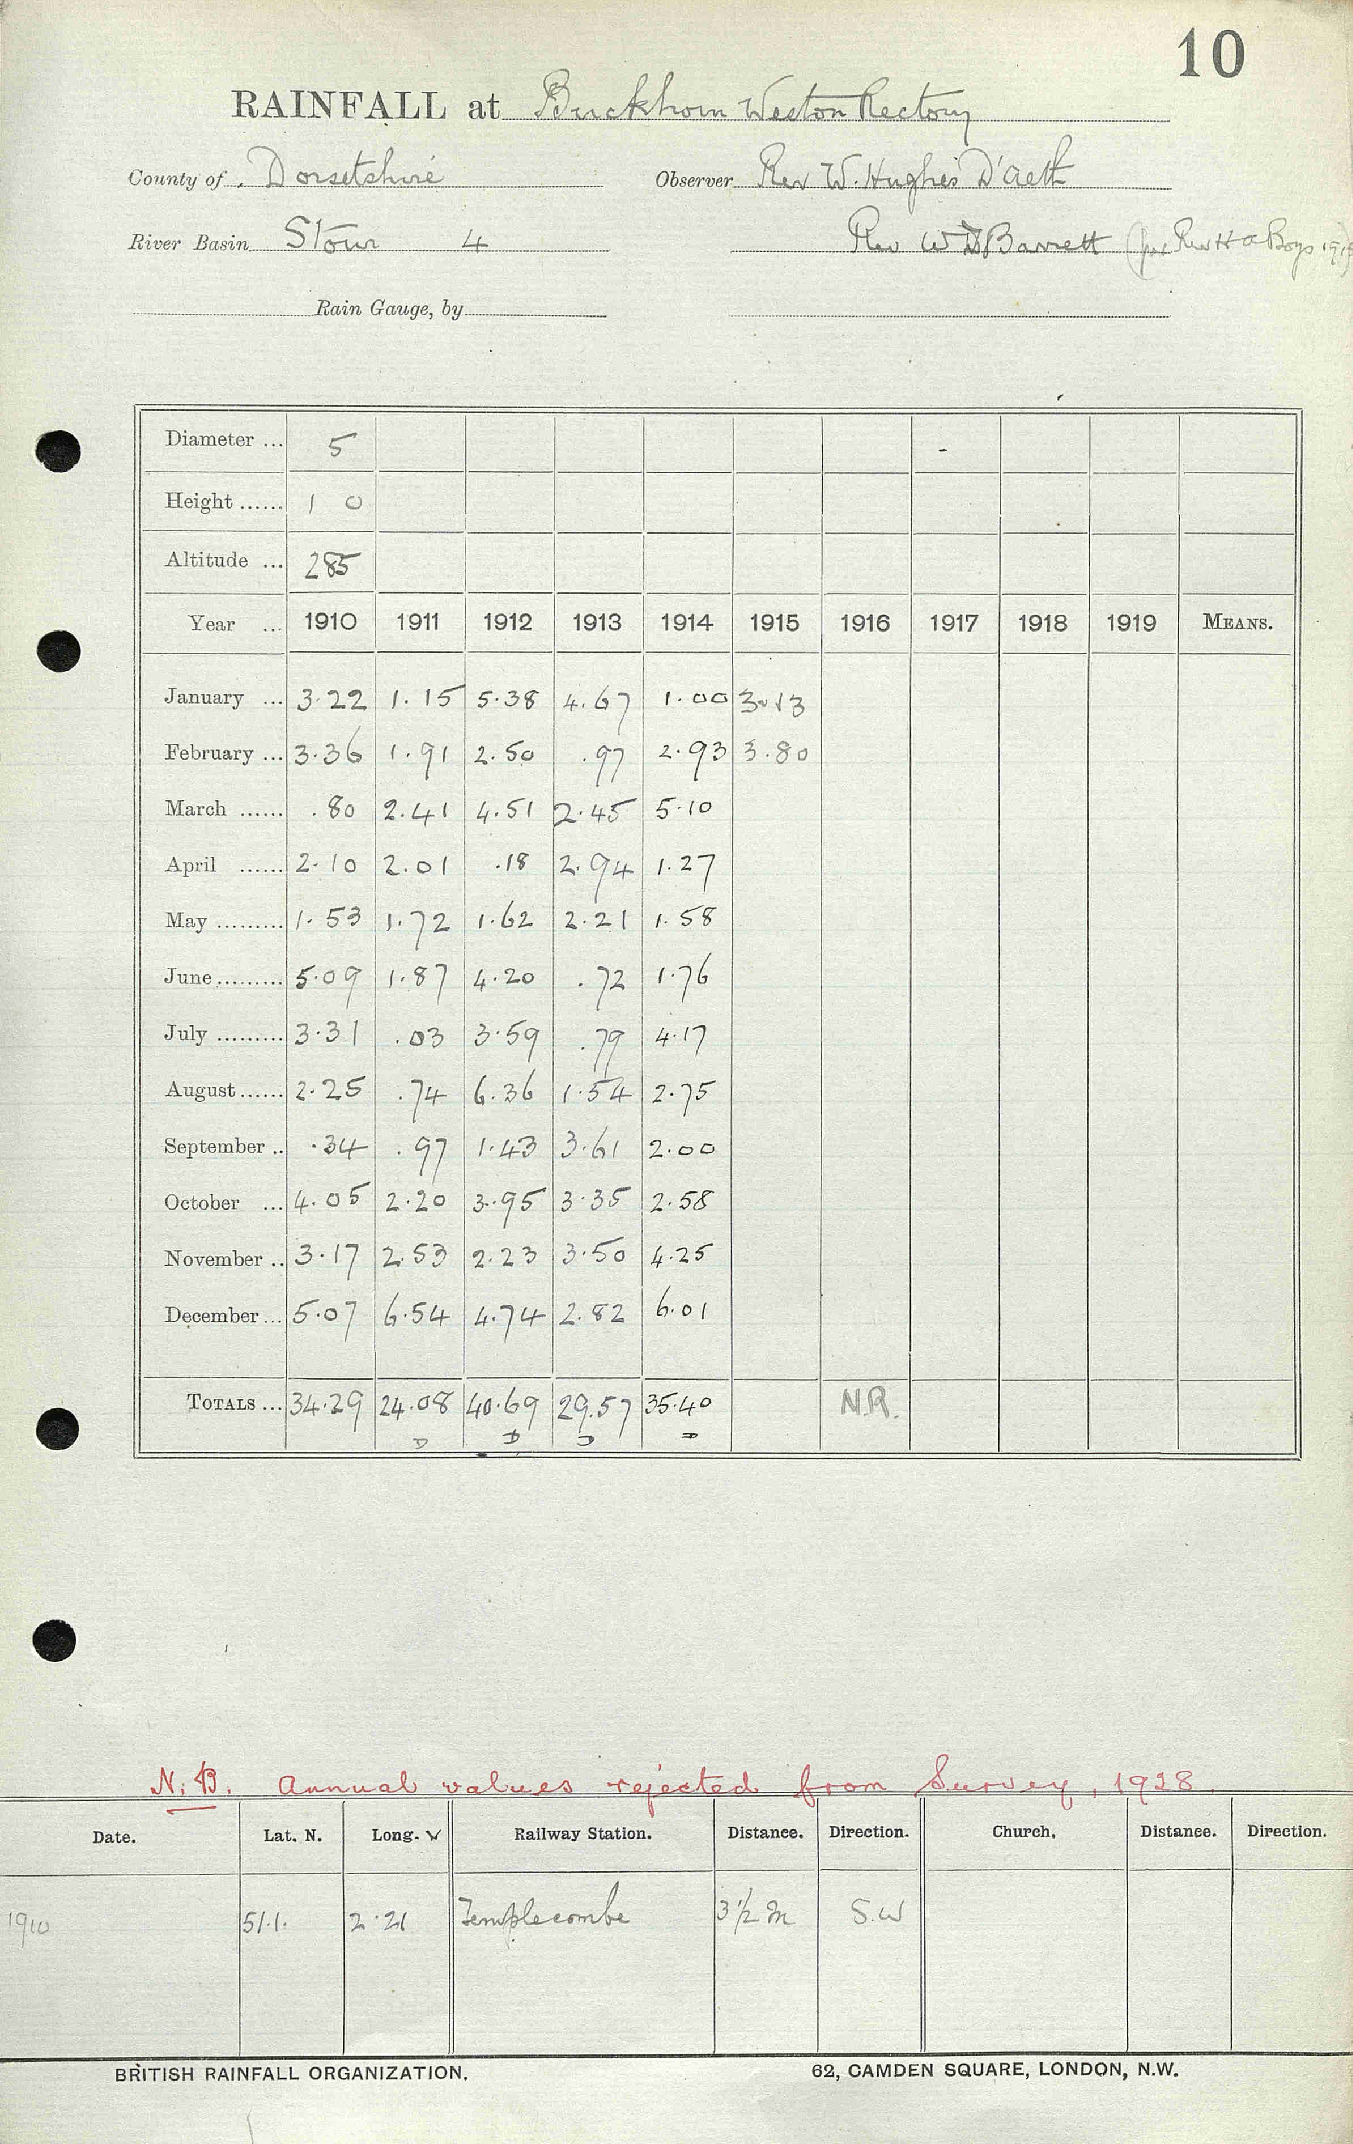 10
RAINFALL at Buckhorn Weston Rectory
County of Dorsetshire Observer Rev W. Hughes D'Aeth
River Basin Stour 4 Rev W D Barrett (per Rev H A Boys 1915)
Rain Gauge, by
Diameter ... 5
Height ...... 1 0
Altitude ... 285
Year ... 1910 1911 1912 1913 1914 1915 1916 1917 1918 1919 MEANS.
January ... 3.22 1.15 5.38 4.67 1.00 3.13
February ... 3.36 1.91 2.50 .97 2.93 3.80
March ...... .80 2.41 4.51 2.45 5.10
April ...... 2.10 2.01 .18 2.94 1.27
May ......... 1.53 1.72 1.62 2.21 1.58
June ......... 5.09 1.87 4.20 .72 1.76
July ......... 3.31 .03 3.59 .79 4.17
August ...... 2.25 .74 6.36 1.54 2.75
September .. .34 .97 1.43 3.61 2.00
October ... 4.05 2.20 3.95 3.35 2.58
November .. 3.17 2.53 2.23 3.50 4.25
December ... 5.07 6.54 4.74 2.82 6.01
TOTALS ... 34.29 24.08 40.69 29.57 35.40 N.R.
D D D D
N.B. Annual values rejected from Survey, 1928.
Date. Lat. N. Long. W Railway Station. Distance. Direction. Church. Distance. Direction.
1910 51.1. 2.21 Templecombe 3 1/2 m S.W
BRITISH RAINFALL ORGANIZATION. 62, CAMDEN SQUARE, LONDON, N.W.